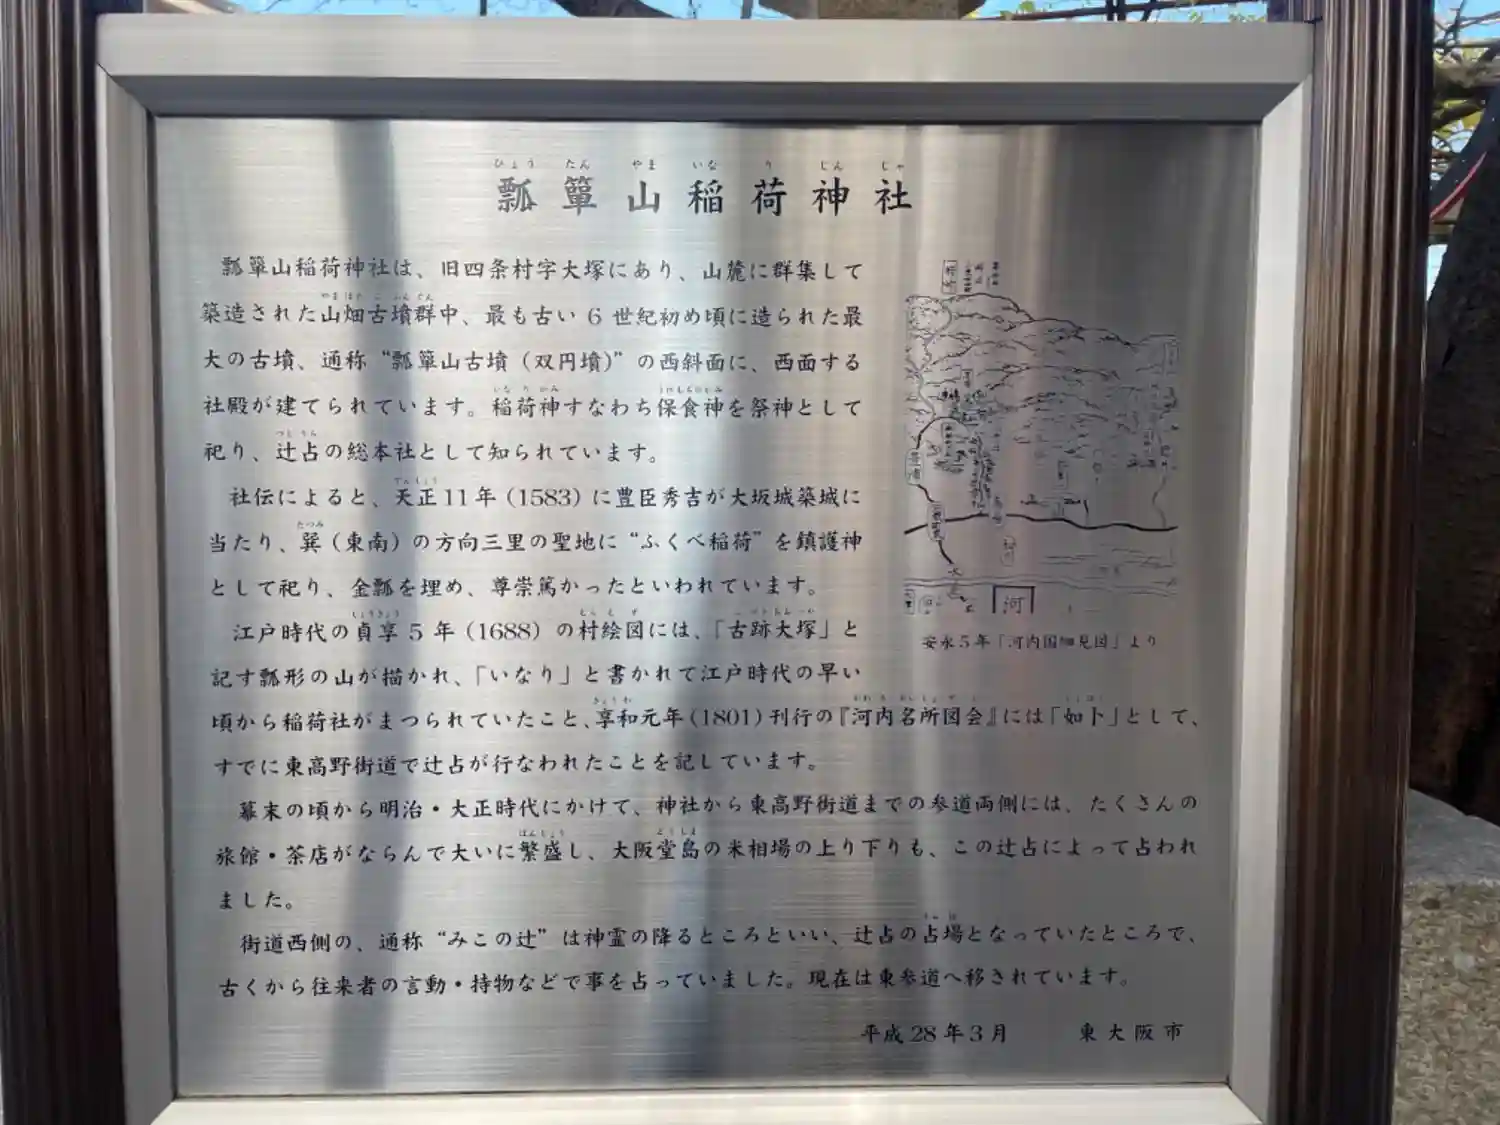 瓢簞山稲荷神社
瓢簞山稲荷神社は、旧四条村字大塚にあり、山麓に群集して
築造された山畑古墳群中、最も古い6世紀初め頃に造られた最
大の古墳、通称“瓢簞山古墳（双円墳）”の西斜面に、西面する
社殿が建てられています。稲荷神すなわち保食神を祭神として
祀り、辻占の総本社として知られています。
社伝によると、天正11年（1583）に豊臣秀吉が大坂城築城に
当たり、巽（東南）の方向三里の聖地に“ふくべ稲荷”を鎮護神
として祀り、金瓢を埋め、尊崇篤かったといわれています。
江戸時代の貞享5年（1688）の村絵図には、「古跡大塚」と
記す瓢形の山が描かれ、「いなり」と書かれて江戸時代の早い
頃から稲荷社がまつられていたこと、享和元年（1801）刊行の『河内名所図会』には「如卜」として、
すでに東高野街道で辻占が行なわれたことを記しています。
幕末の頃から明治・大正時代にかけて、神社から東高野街道までの参道両側には、たくさんの
旅館・茶店がならんで大いに繁盛し、大阪堂島の米相場の上り下りも、この辻占によって占われ
ました。
街道西側の、通称“みこの辻”は神霊の降るところといい、辻占の占場となっていたところで、
古くから往来者の言動・持物などで事を占っていました。現在は東参道へ移されています。
平成28年3月　東大阪市
河
安永5年「河内国細見図」より